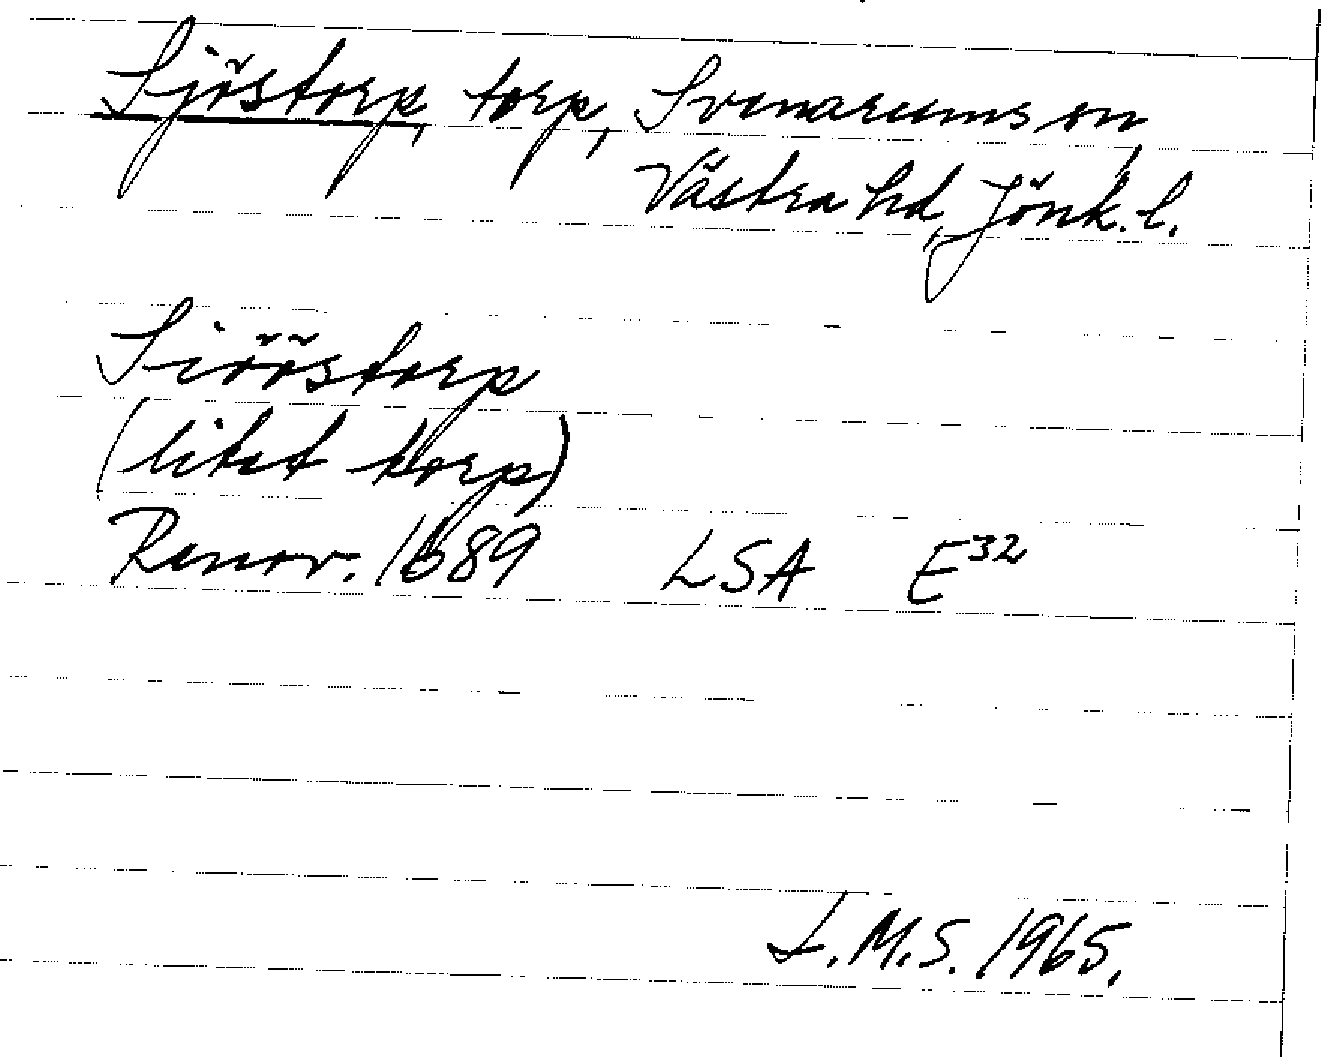 Sjöstorp, torp, Svenarums sn,
Västra hd, Jönk. l.
Siööstorp
(litet torp)
Renov. 1689 LSA E32
I.M.S. 1965.